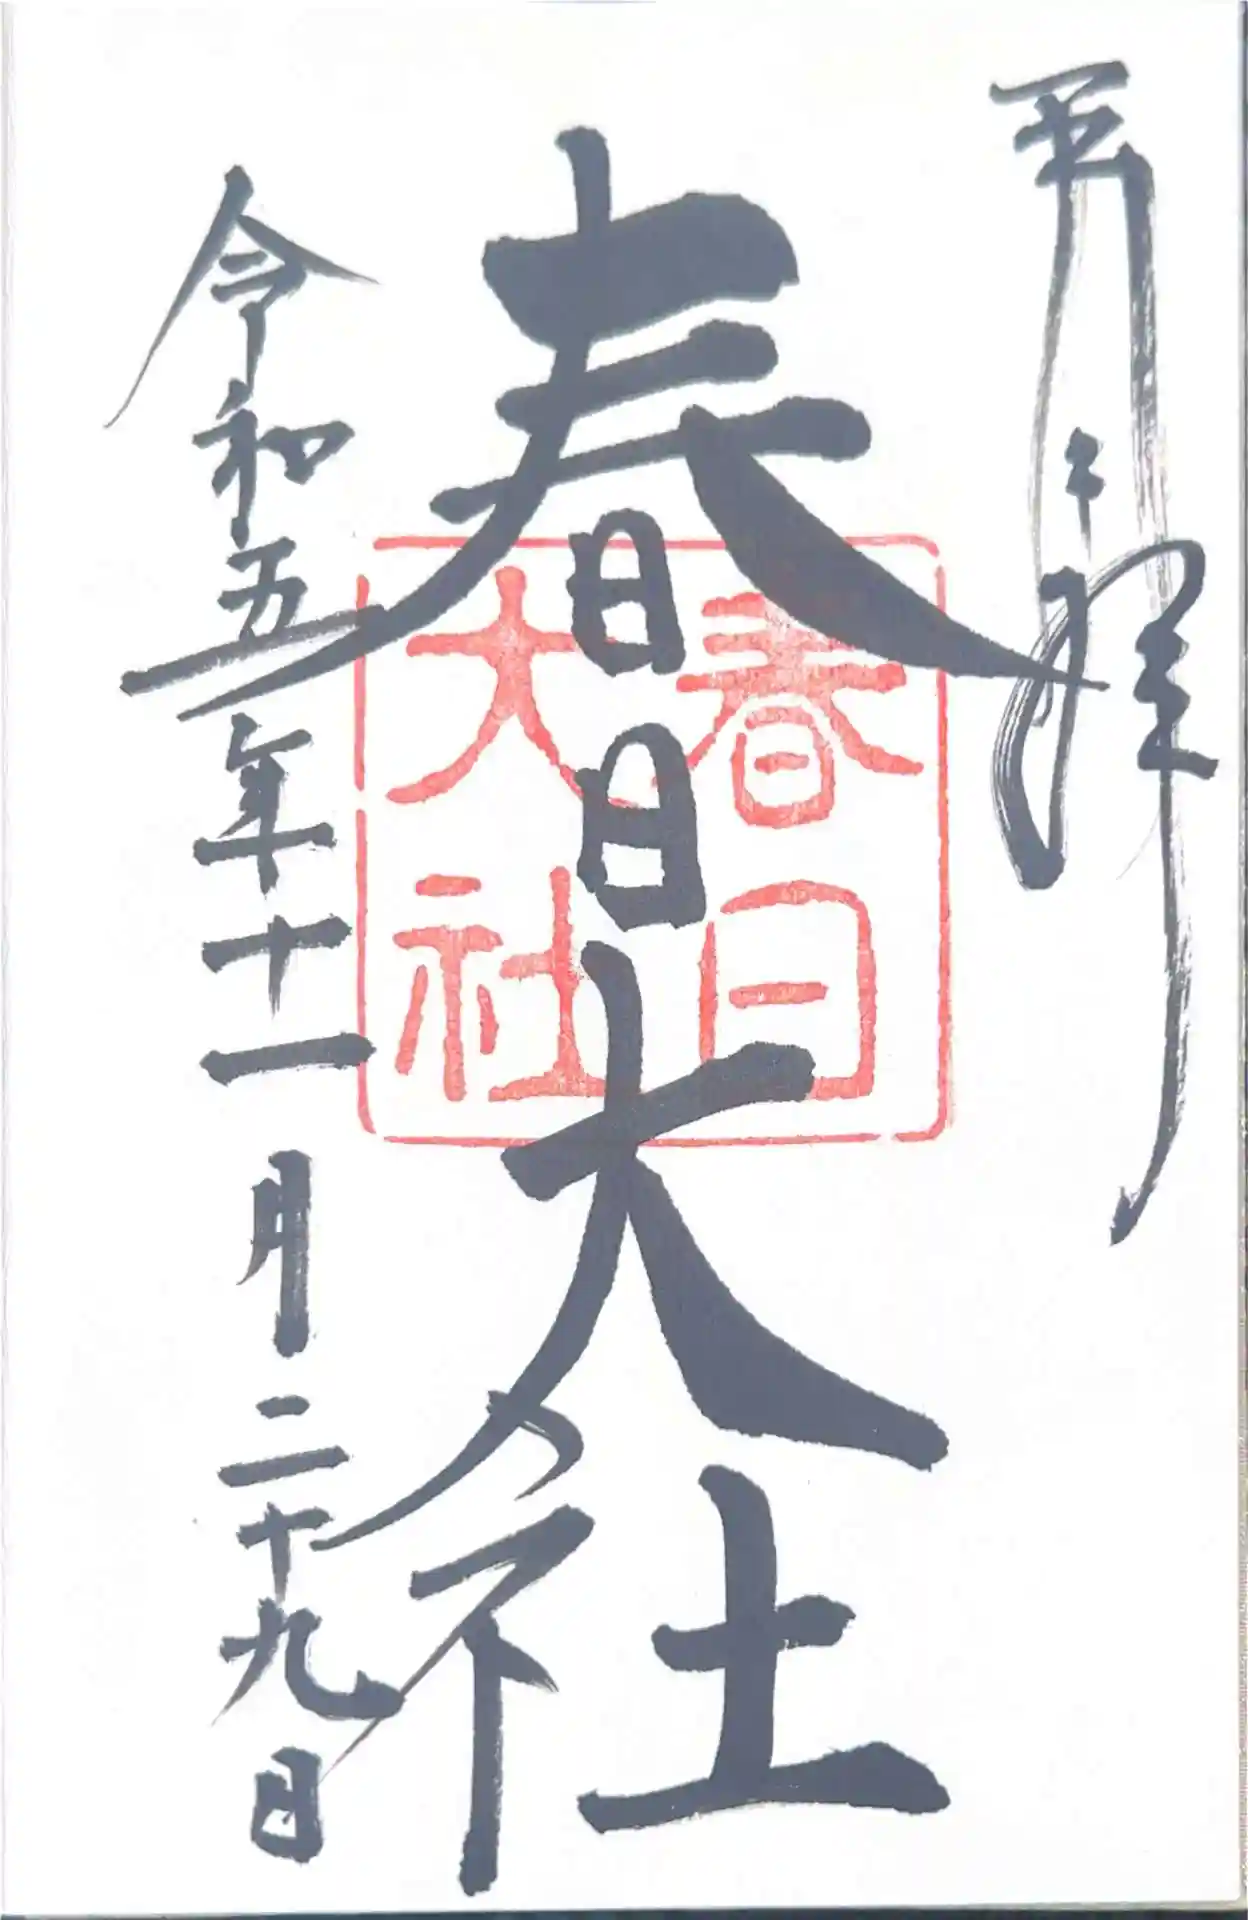 再拝
春日大社
春日大社
令和五年十一月二十九日